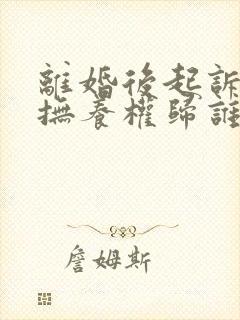 離婚後起訴
撫養權歸誰
詹姆斯